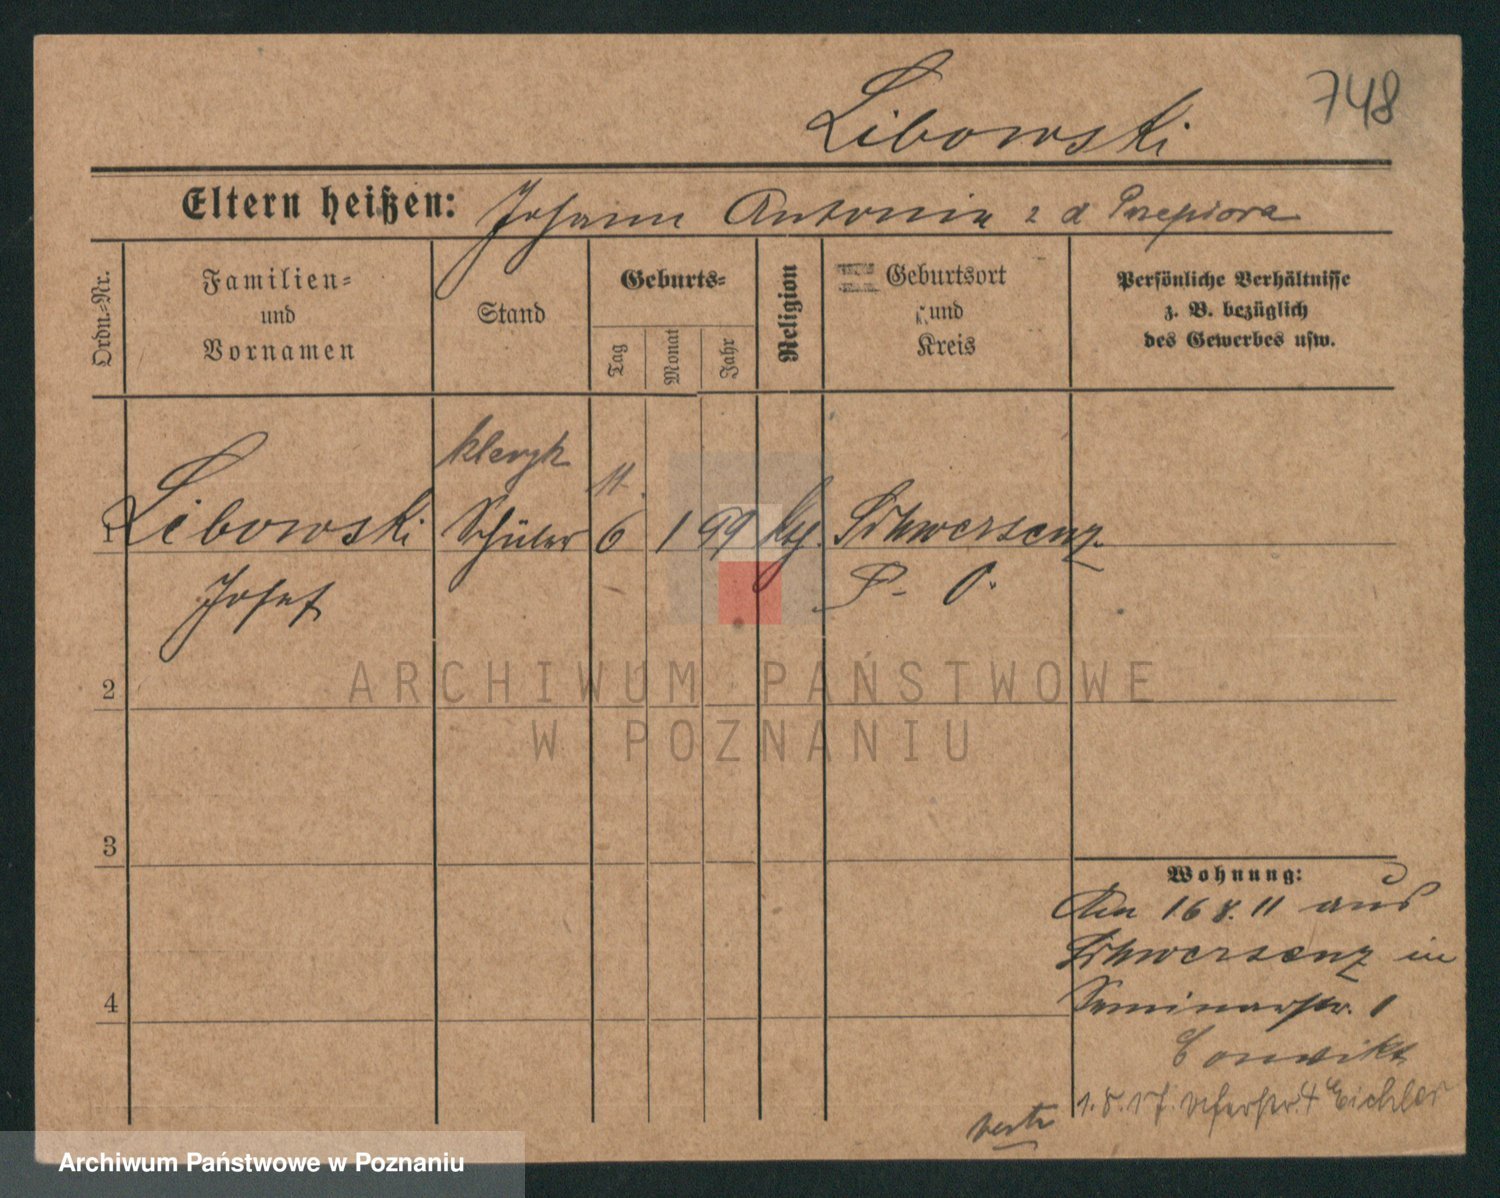 748
Libowski
Eltern heißen: Johann Antonia z d Przepiora
Ordn.-Nr.
Familien-
und
Vornamen
Stand
Geburts-
Tag
Monat
Jahr
Religion
Geburtsort
und
Kreis
Persönliche Verhältnisse
z. B. bezüglich
des Gewerbes usw.
kleryk
11.
1 Libowski Schüler 6 1 99 kth. Schwersenz
Josef P. O.
2
3
4
Wohnung:
Am 16 8. 11 aus
Schwersenz in
Seminarstr. 1
Convikt
1. 5. 17. Eichler
ARCHIWUM PAŃSTWOWE
W POZNANIU
Archiwum Państwowe w Poznaniu